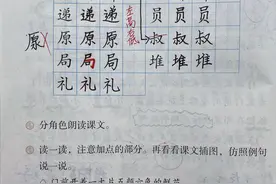 递 递 递 左高右低 员 员 员
原 原 原 原 叔 叔 叔
局 局 局 堆 堆 堆
礼 礼 礼
分角色朗读课文。
读一读，注意加点的部分。再看看课文插图，仿照例句
说一说。